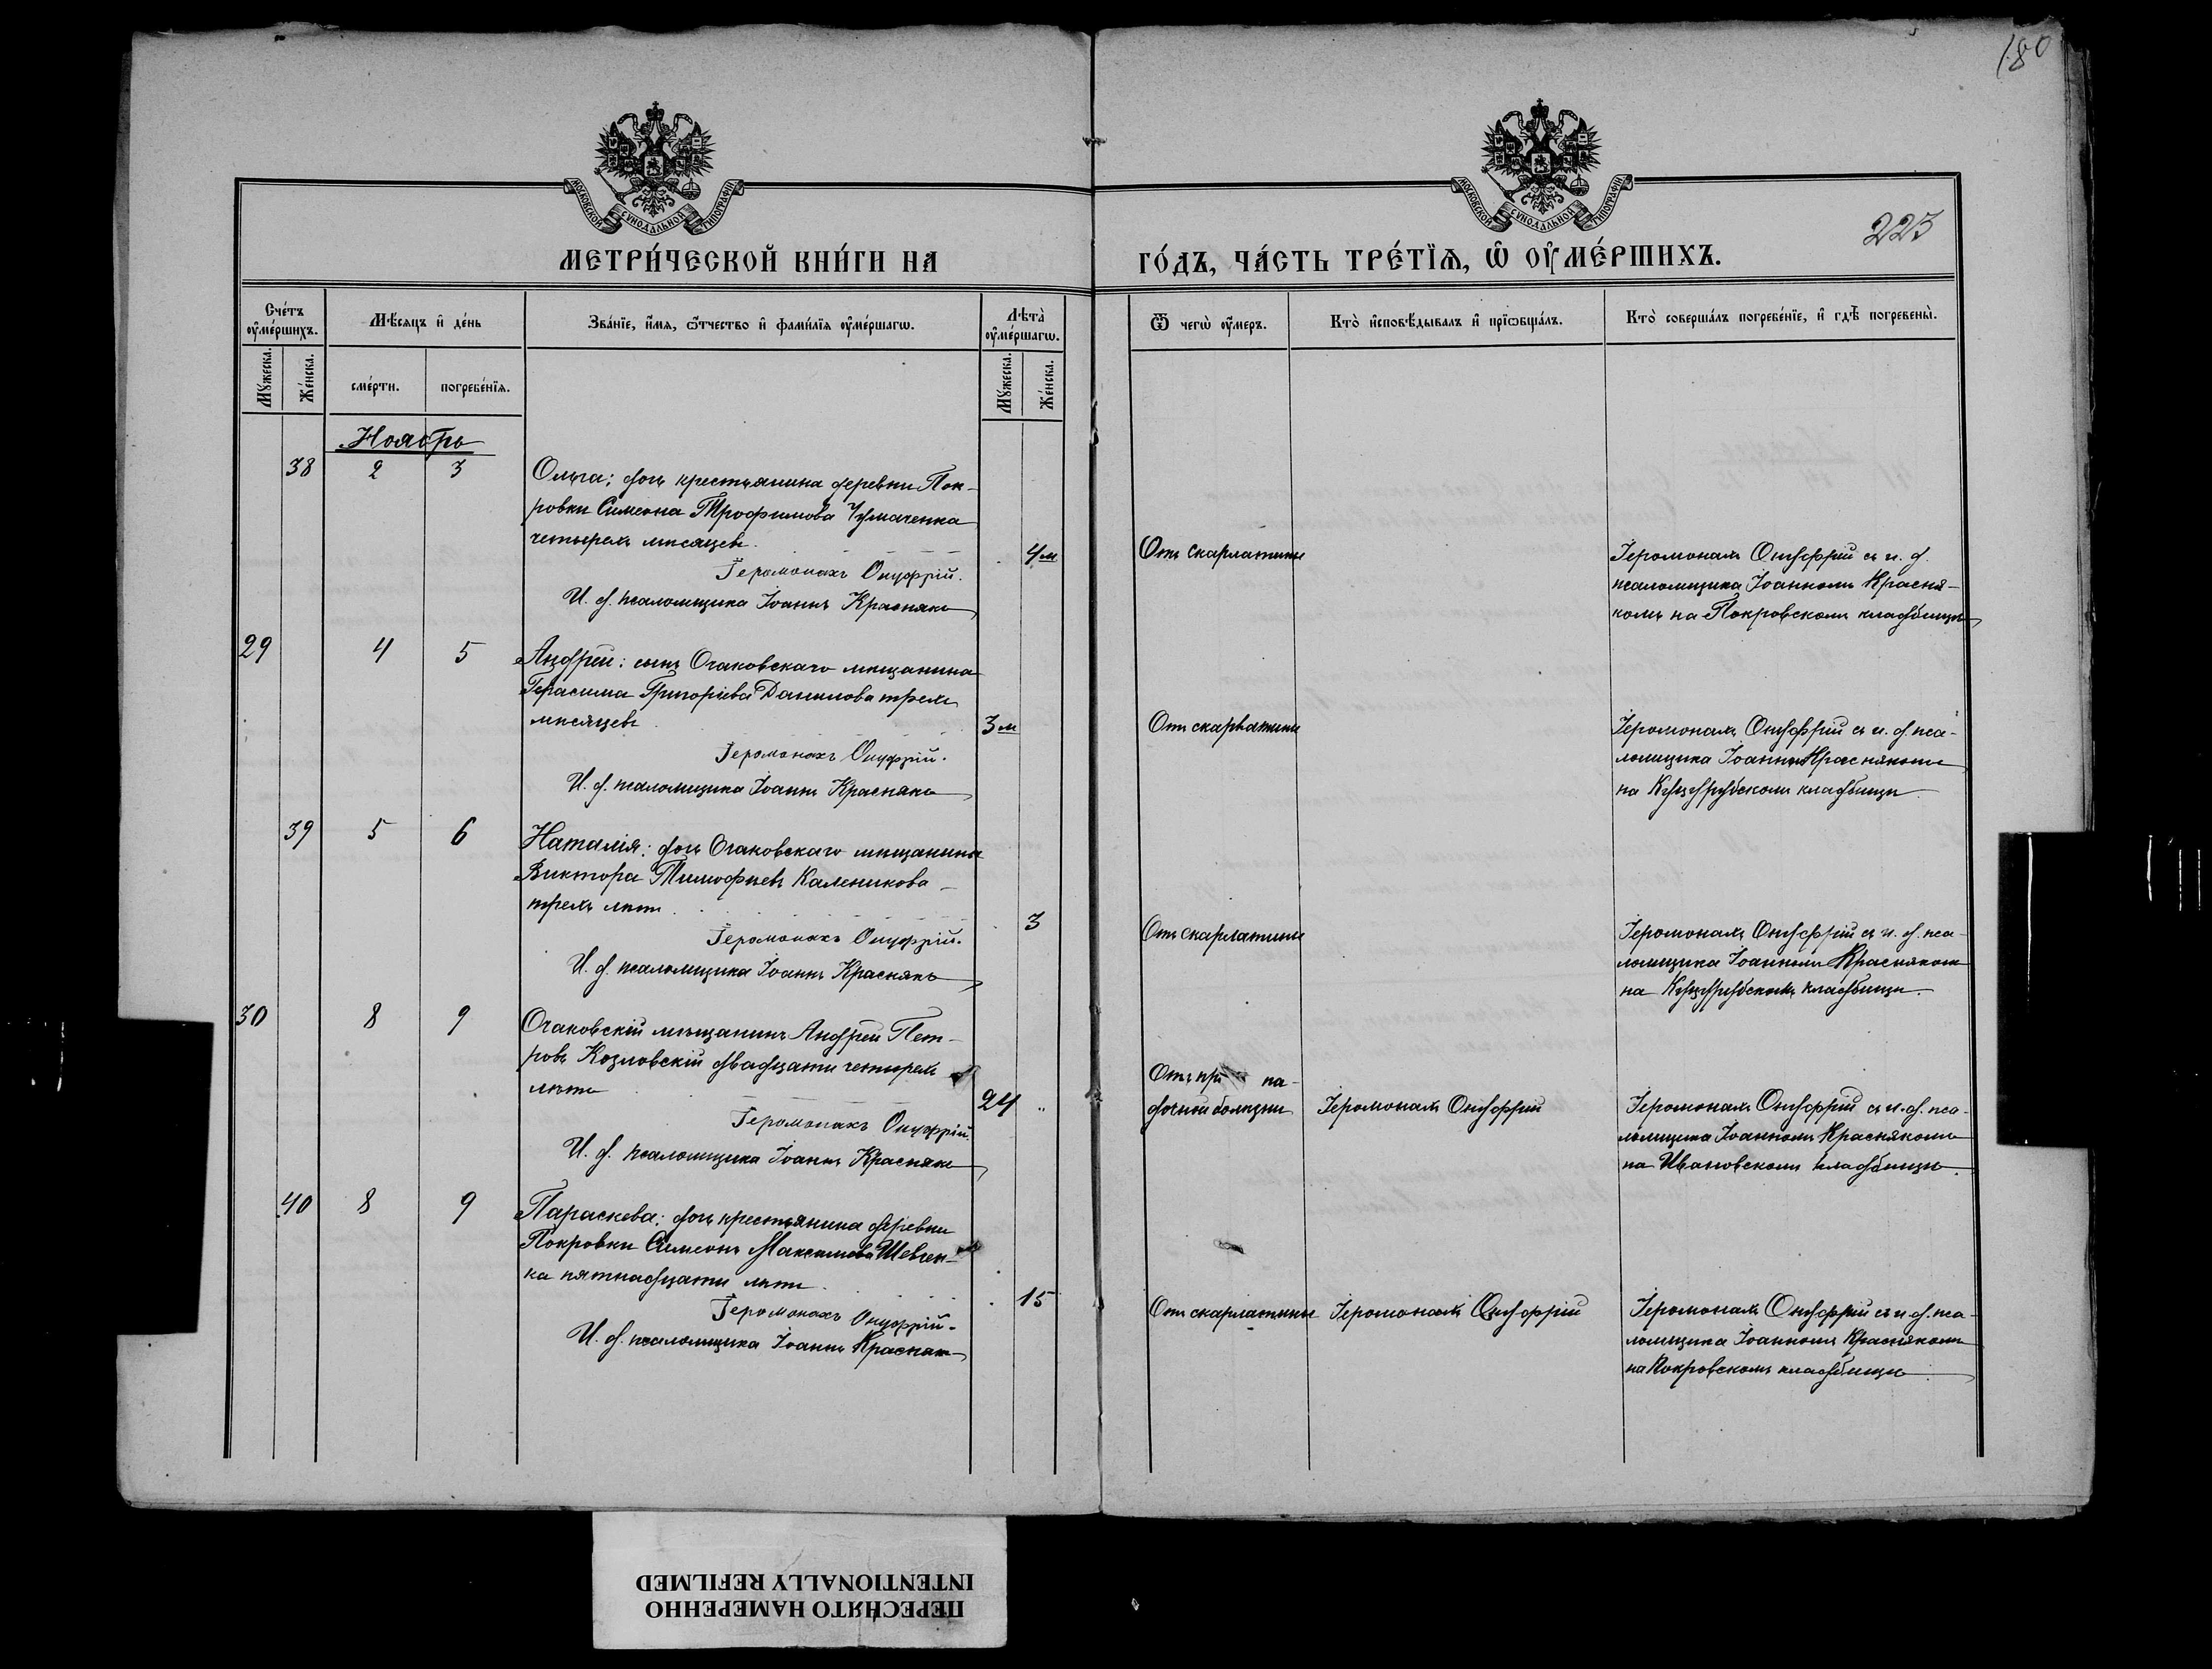 180
МОСКОВСКОЙ СѴНОДАЛЬНОЙ ТИПОГРАФІИ
МОСКОВСКОЙ СѴНОДАЛЬНОЙ ТИПОГРАФІИ
223
МЕТРИ́ЧЕСКОЙ КНИ́ГИ НА
ГО́ДЪ, ЧА́СТЬ ТРЕ́ТЇѦ, Ѽ ОУ҆МЕ́РШИХЪ.
Сче́тъ оу҆ме́ршихъ.
Мꙋ́жеска.
Же́нска.
Мѣ́сяцъ и҆ де́нь
сме́рти.
погребе́нїѧ.
Зва́нїе, и҆́мѧ, ѻ҆́тчество и҆ фами́лїѧ оу҆ме́ршагѡ.
Лѣ̑та̀ оу҆ме́ршагѡ.
Мꙋ́жеска.
Же́нска.
Ѿ чегѡ̀ оу҆́меръ.
Кто̀ и҆сповѣ́дывалъ и҆ прїѡбща́лъ.
Кто̀ соверша́лъ погребе́нїе, и҆ гдѣ̀ погребены̀.
Ноябрь
38 2 3 Ольга; дочь крестьянина деревни Пок-
ровки Симеона Трофимова Чумаченка
четырехъ мѣсяцевъ. 4м
Іеромонахъ Онуфрій.
И. д. псаломщика Іоаннъ Краснякъ
Отъ скарлатины
Іеромонахъ Онуфрій съ и. д.
псаломщика Іоанномъ Красня-
комъ на Покровскомъ кладбищѣ
29 4 5 Андрей: сынъ Очаковскаго мѣщанина
Герасима Григоріева Данилова трехъ
мѣсяцевъ 3м
Іеромонахъ Онуфрій.
И. д. псаломщика Іоаннъ Краснякъ
Отъ скарлатины
Іеромонахъ Онуфрій съ и. д. пса-
ломщика Іоанномъ Краснякомъ
на Куцурубскомъ кладбищѣ
39 5 6 Наталія: дочь Очаковскаго мѣщанина
Виктора Тимофѣевъ Каленикова
трехъ лѣтъ 3
Іеромонахъ Онуфрій.
И. д. псаломщика Іоаннъ Краснякъ
Отъ скарлатины
Іеромонахъ Онуфрій съ и. д. пса-
ломщика Іоанномъ Краснякомъ
на Куцурубскомъ кладбищѣ.
30 8 9 Очаковскій мѣщанинъ Андрей Пет-
ровъ Козловскій двадцати четырехъ
лѣтъ 24 "
Іеромонахъ Онуфрій.
И. д. псаломщика Іоаннъ Краснякъ
Отъ па-
дочной болѣзни
Іеромонахъ Онуфрій
Іеромонахъ Онуфрій съ и. д. пса-
ломщика Іоанномъ Краснякомъ
на Ивановскомъ кладбищѣ.
40 8 9 Параскева; дочь крестьянина деревни
Покровки Симеонъ Максимова Шевчен-
ка пятнадцати лѣтъ 15
Іеромонахъ Онуфрій.
И. д. псаломщика Іоаннъ Краснякъ
Отъ скарлатины
Іеромонахъ Онуфрій
Іеромонахъ Онуфрій съ и. д. пса-
ломщика Іоанномъ Краснякомъ
на Покровскомъ кладбищѣ
ПЕРЕСНЯТО НАМЕРЕННО
INTENTIONALLY REFILMED